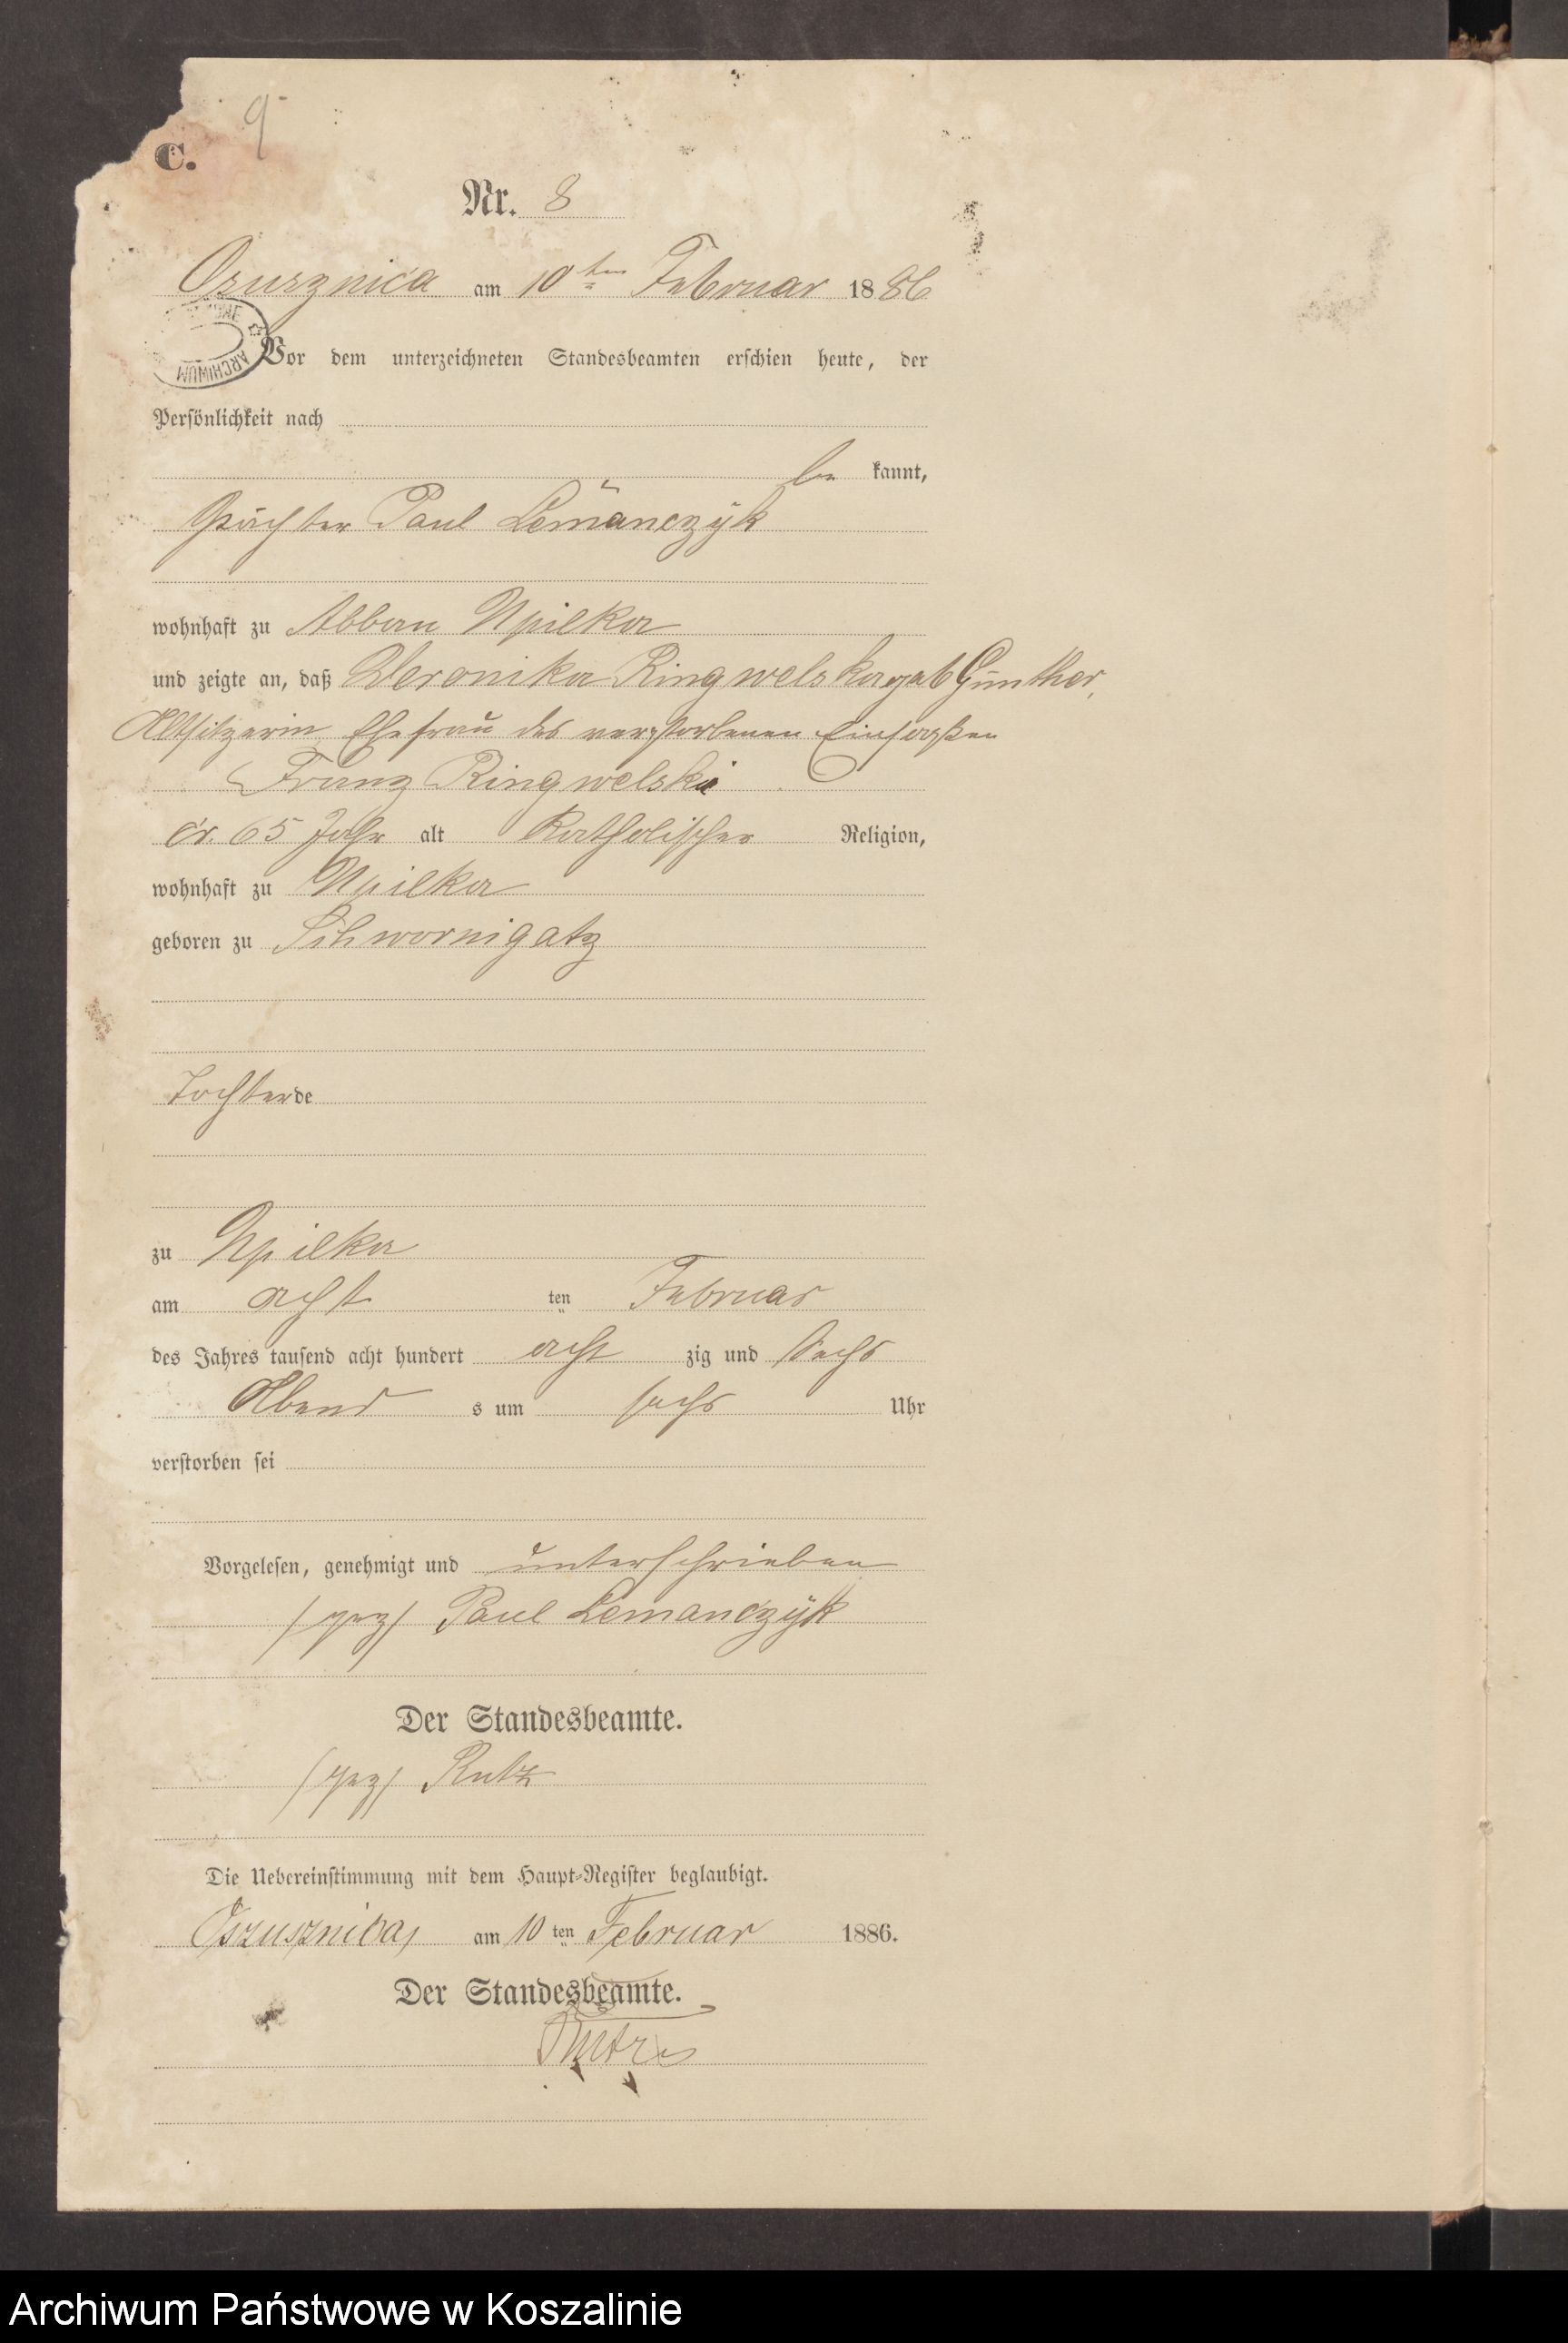 9
C.
Nr. 8
Oszusznica am 10ten Februar 1886
ARCHIWUM
Vor dem unterzeichneten Standesbeamten erschien heute, der
Persönlichkeit nach
be kannt,
Pächter Paul Lemanczÿk
wohnhaft zu Abbau Upilka
und zeigte an, daß Veronika Ringwelska geb Günther,
Altsitzerin, Ehefrau des verstorbenen Einsaßen
Franz Ringwelski
cr. 65 Jahr alt Katholischer Religion,
wohnhaft zu Upilka
geboren zu Schwornigatz
Tochter de
zu Upilka
am acht ten Februar
des Jahres tausend acht hundert acht zig und Sechs
Abend s um sechs Uhr
verstorben sei
Vorgelesen, genehmigt und unterschrieben
/gez/ Paul Lemanczÿk
Der Standesbeamte.
/gez/ Rutz
Die Uebereinstimmung mit dem Haupt-Register beglaubigt.
Oszusznica, am 10 ten Februar 1886.
Der Standesbeamte.
Archiwum Państwowe w Koszalinie